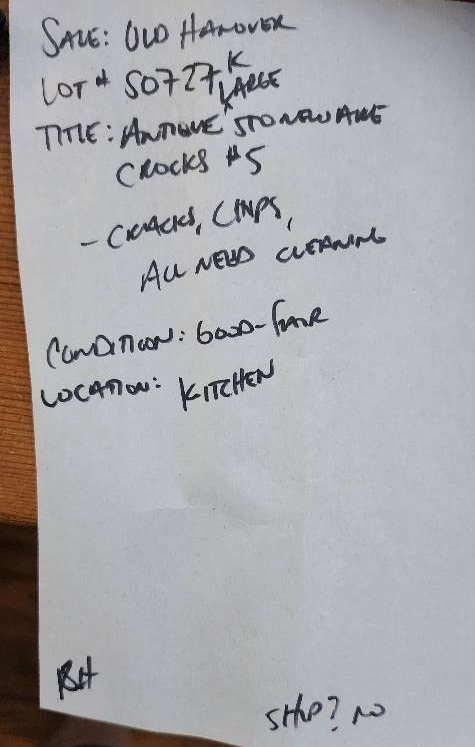 SALE: OLD HANOVER
LOT # S0727K
TITLE: ANTIQUE LARGE STONEWARE
CROCKS #5
- CRACKS, CHIPS,
ALL NEED CLEANING
CONDITION: GOOD-FAIR
LOCATION: KITCHEN
BH
SHIP? NO